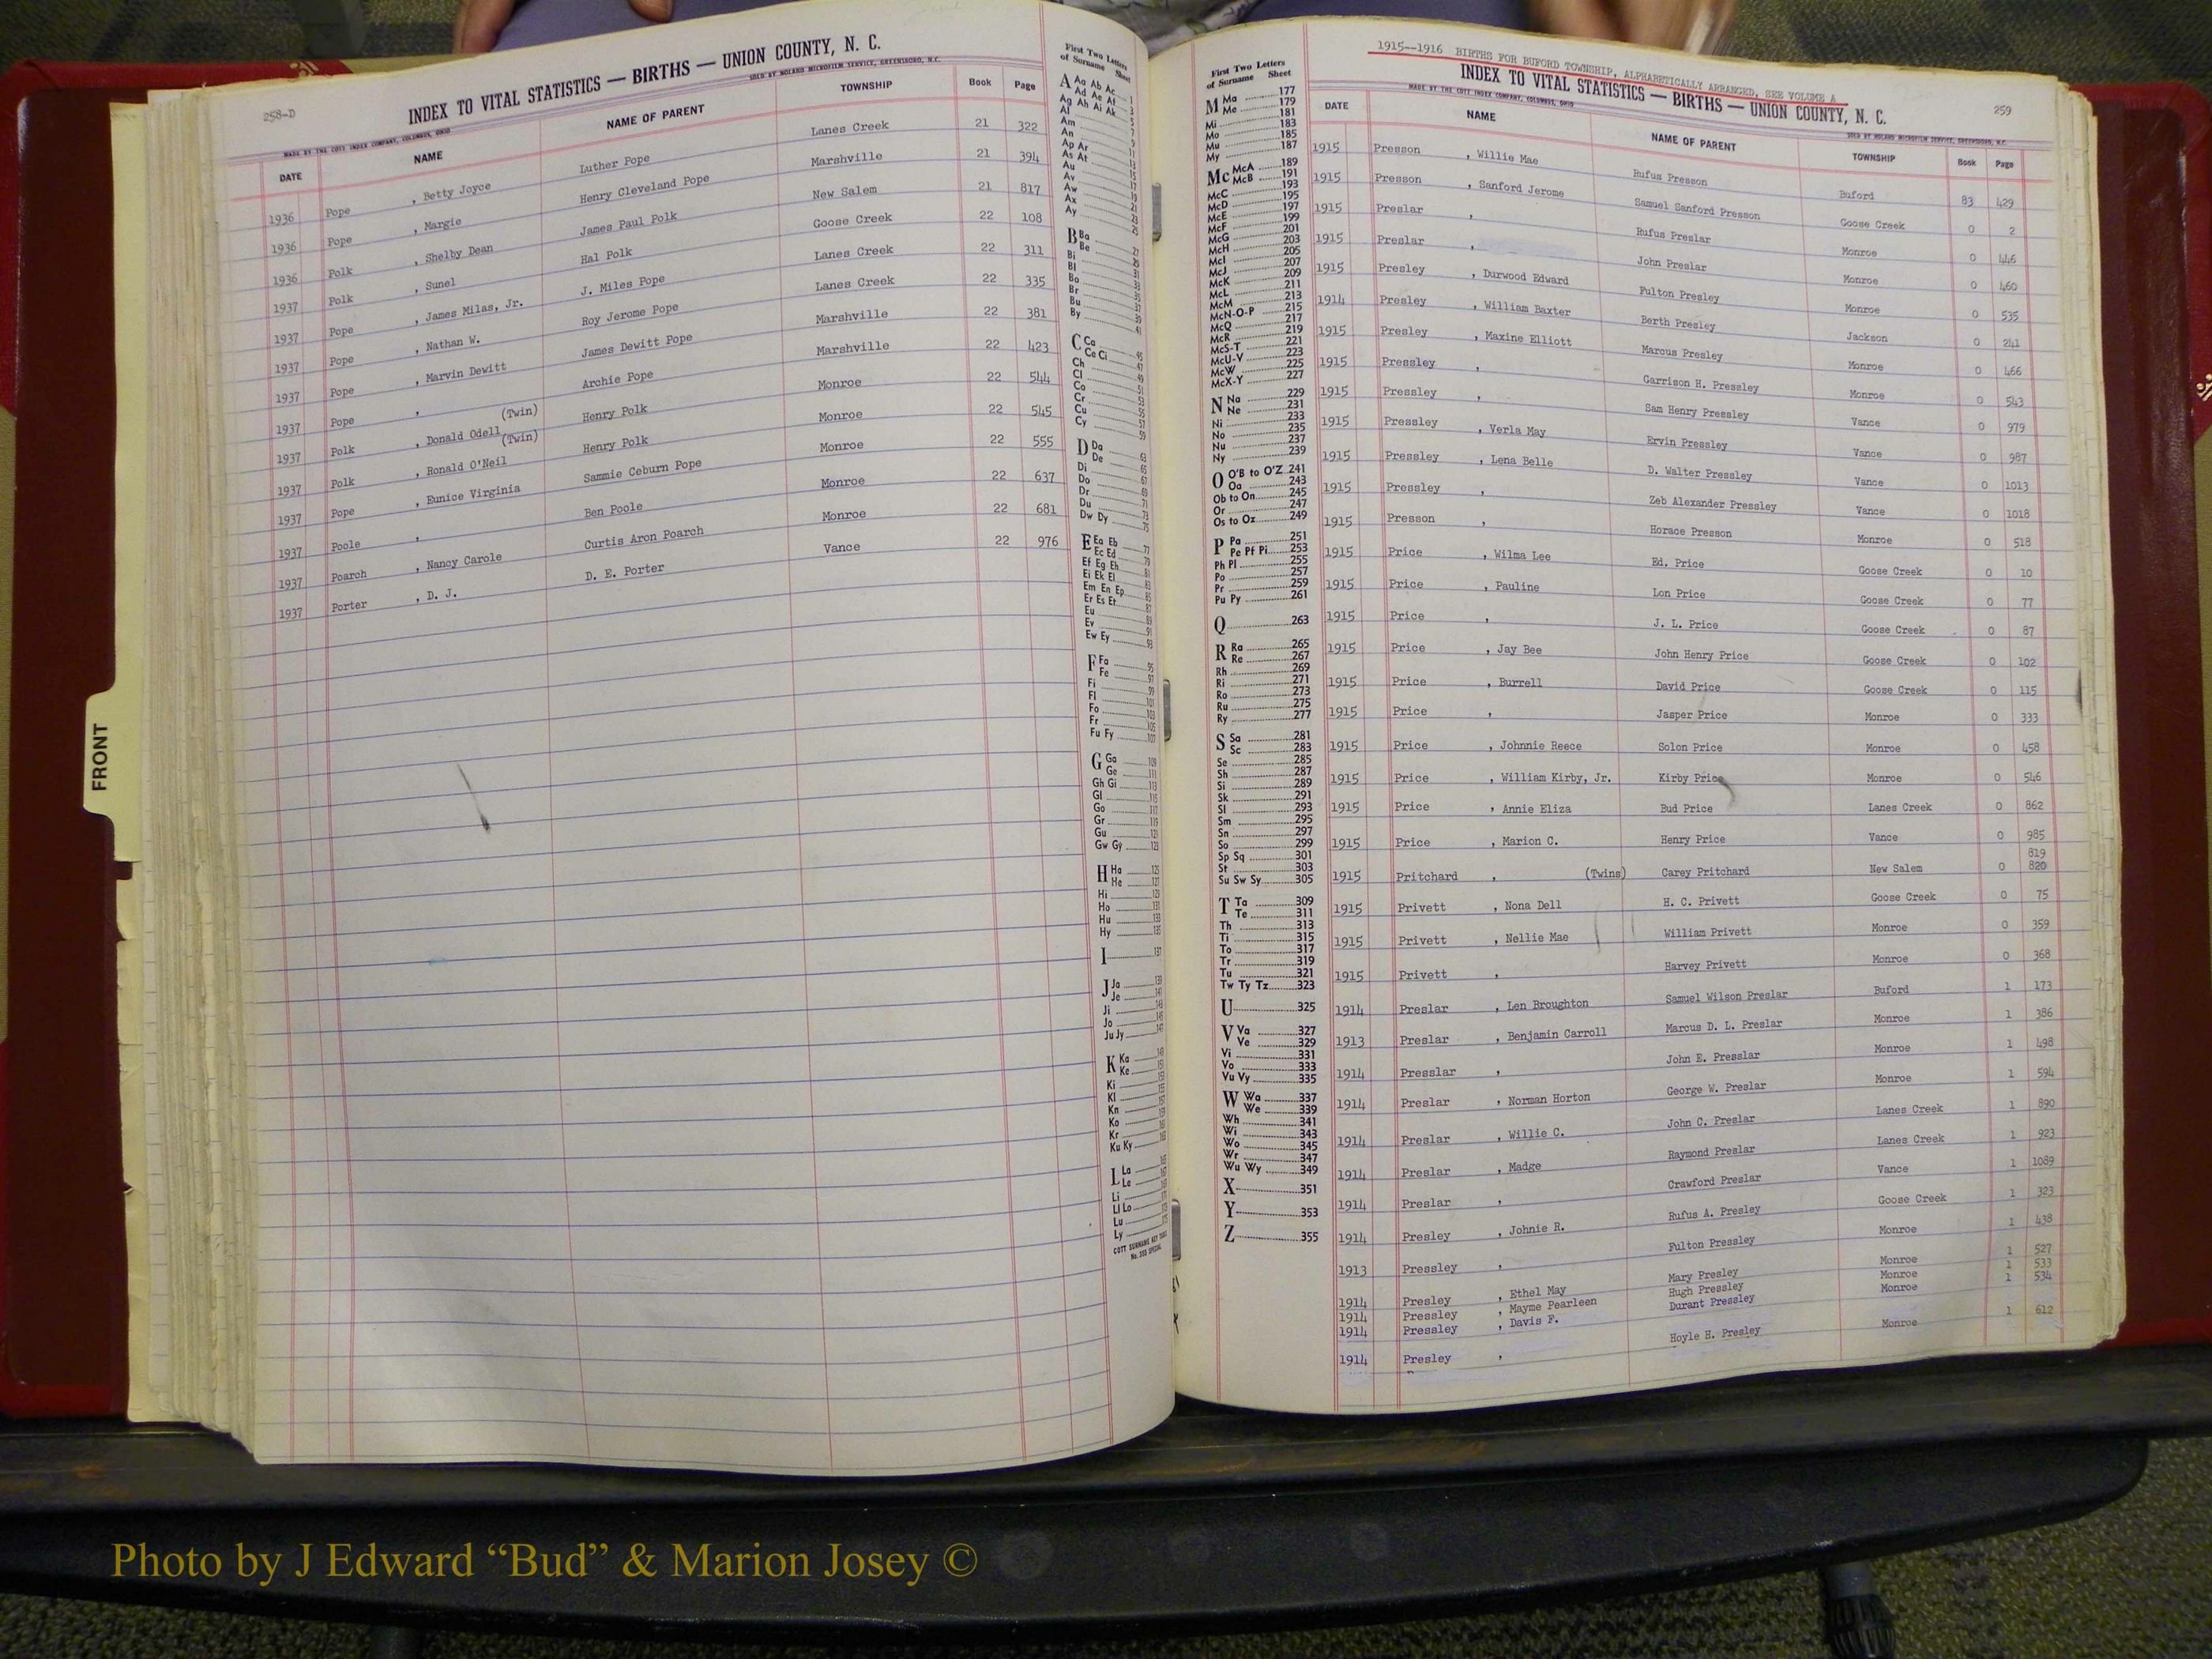 258-D
INDEX TO VITAL STATISTICS — BIRTHS — UNION COUNTY, N. C.
MADE BY THE COTT INDEX COMPANY, COLUMBUS, OHIO SOLD BY NOLAND MICROFILM SERVICE, GREENSBORO, N.C.
DATE NAME NAME OF PARENT TOWNSHIP Book Page
1936 Pope , Betty Joyce Luther Pope Lanes Creek 21 322
1936 Pope , Margie Henry Cleveland Pope Marshville 21 394
1936 Polk , Shelby Dean James Paul Polk New Salem 21 817
1937 Polk , Sunel Hal Polk Goose Creek 22 108
1937 Pope , James Milas, Jr. J. Miles Pope Lanes Creek 22 311
1937 Pope , Nathan W. Roy Jerome Pope Lanes Creek 22 335
1937 Pope , Marvin Dewitt James Dewitt Pope Marshville 22 381
1937 Pope , Archie Pope Marshville 22 423
1937 Polk , Donald Odell (Twin) Henry Polk Monroe 22 544
1937 Polk , Ronald O'Neil (Twin) Henry Polk Monroe 22 545
1937 Pope , Eunice Virginia Sammie Ceburn Pope Monroe 22 555
1937 Poole , Ben Poole Monroe 22 637
1937 Poarch , Nancy Carole Curtis Aron Poarch Monroe 22 681
1937 Porter , D. J. D. E. Porter Vance 22 976
FRONT
First Two Letters
of Surname Sheet
A Aa Ab Ac
Ad Ae Af
Ag Ah Ai Ak
Al
Am
An
Ap Ar
As At
Au
Av
Aw
Ax
Ay
B Ba
Be
Bi
Bl
Bo
Br
Bu
By
C Ca
Ce Ci
Ch
Cl
Co
Cr
Cu
Cy
D Da
De
Di
Do
Dr
Du
Dw Dy
E Ea Eb
Ec Ed
Ef Eg Eh
Ei Ek El
Em En Ep
Er Es Et
Eu
Ev
Ew Ey
F Fa
Fe
Fi
Fl
Fo
Fr
Fu Fy
G Ga
Ge
Gh Gi
Gl
Go
Gr
Gu
Gw Gy
H Ha
He
Hi
Ho
Hu
Hy
I
J Ja
Je
Ji
Jo
Ju Jy
K Ka
Ke
Ki
Kl
Kn
Ko
Kr
Ku Ky
L La
Le
Li
Ll Lo
Lu
Ly
COTT SURNAME KEY
First Two Letters
of Surname Sheet
M Ma 177
Me 179
Mi 181
Mo 183
Mu 185
My 187
Mc McA 189
McB 191
McC 193
McD 195
McE 197
McF 199
McG 201
McH 203
McI 205
McJ 207
McK 209
McL 211
McM 213
McN-O-P 215
McQ 217
McR 219
McS-T 221
McU-V 223
McW 225
McX-Y 227
N Na 229
Ne 231
Ni 233
No 235
Nu 237
Ny 239
O O'B to O'Z 241
Oa 243
Ob to On 245
Or 247
Os to Oz 249
P Pa 251
Pe Pf Pi 253
Ph Pl 255
Po 257
Pr 259
Pu Py 261
Q 263
R Ra 265
Re 267
Rh 269
Ri 271
Ro 273
Ru 275
Ry 277
S Sa 281
Sc 283
Se 285
Sh 287
Si 289
Sk 291
Sl 293
Sm 295
Sn 297
So 299
Sp Sq 301
St 303
Su Sw Sy 305
T Ta 309
Te 311
Th 313
Ti 315
To 317
Tr 319
Tu 321
Tw Ty Tz 323
U 325
V Va 327
Ve 329
Vi 331
Vo 333
Vu Vy 335
W Wa 337
We 339
Wh 341
Wi 343
Wo 345
Wr 347
Wu Wy 349
X 351
Y 353
Z 355
1915--1916 BIRTHS FOR BUFORD TOWNSHIP, ALPHABETICALLY ARRANGED, SEE VOLUME A
INDEX TO VITAL STATISTICS — BIRTHS — UNION COUNTY, N. C. 259
MADE BY THE COTT INDEX COMPANY, COLUMBUS, OHIO SOLD BY NOLAND MICROFILM SERVICE, GREENSBORO, N.C.
DATE NAME NAME OF PARENT TOWNSHIP Book Page
1915 Presson , Willie Mae Rufus Presson Buford 83 429
1915 Presson , Sanford Jerome Samuel Sanford Presson Goose Creek 0 2
1915 Preslar , Rufus Preslar Monroe 0 446
1915 Preslar , John Preslar Monroe 0 460
1915 Presley , Durwood Edward Fulton Presley Monroe 0 535
1914 Presley , William Baxter Berth Presley Jackson 0 241
1915 Presley , Maxine Elliott Marcus Presley Monroe 0 466
1915 Pressley , Garrison H. Pressley Monroe 0 543
1915 Pressley , Sam Henry Pressley Vance 0 979
1915 Pressley , Verla May Ervin Pressley Vance 0 987
1915 Pressley , Lena Belle D. Walter Pressley Vance 0 1013
1915 Pressley , Zeb Alexander Pressley Vance 0 1018
1915 Presson , Horace Presson Monroe 0 518
1915 Price , Wilma Lee Ed. Price Goose Creek 0 10
1915 Price , Pauline Lon Price Goose Creek 0 77
1915 Price , J. L. Price Goose Creek 0 87
1915 Price , Jay Bee John Henry Price Goose Creek 0 102
1915 Price , Burrell David Price Goose Creek 0 115
1915 Price , Jasper Price Monroe 0 333
1915 Price , Johnnie Reece Solon Price Monroe 0 458
1915 Price , William Kirby, Jr. Kirby Price Monroe 0 546
1915 Price , Annie Eliza Bud Price Lanes Creek 0 862
1915 Price , Marion C. Henry Price Vance 0 985
819
1915 Pritchard , (Twins) Carey Pritchard New Salem 0 820
1915 Privett , Nona Dell H. C. Privett Goose Creek 0 75
1915 Privett , Nellie Mae William Privett Monroe 0 359
1915 Privett , Harvey Privett Monroe 0 368
1914 Preslar , Len Broughton Samuel Wilson Preslar Buford 1 173
1913 Preslar , Benjamin Carroll Marcus D. L. Preslar Monroe 1 386
1914 Presslar , John E. Presslar Monroe 1 498
1914 Preslar , Norman Horton George W. Preslar Monroe 1 594
1914 Preslar , Willie C. John C. Preslar Lanes Creek 1 890
1914 Preslar , Madge Raymond Preslar Lanes Creek 1 923
1914 Preslar , Crawford Preslar Vance 1 1089
1914 Presley , Johnie R. Rufus A. Presley Goose Creek 1 323
1913 Pressley , Fulton Pressley Monroe 1 438
1914 Presley , Ethel May Mary Presley Monroe 1 527
1914 Pressley , Mayme Pearleen Hugh Pressley Monroe 1 533
1914 Pressley , Davis F. Durant Pressley Monroe 1 534
1914 Presley , Hoyle H. Presley Monroe 1 612
Photo by J Edward “Bud” & Marion Josey ©